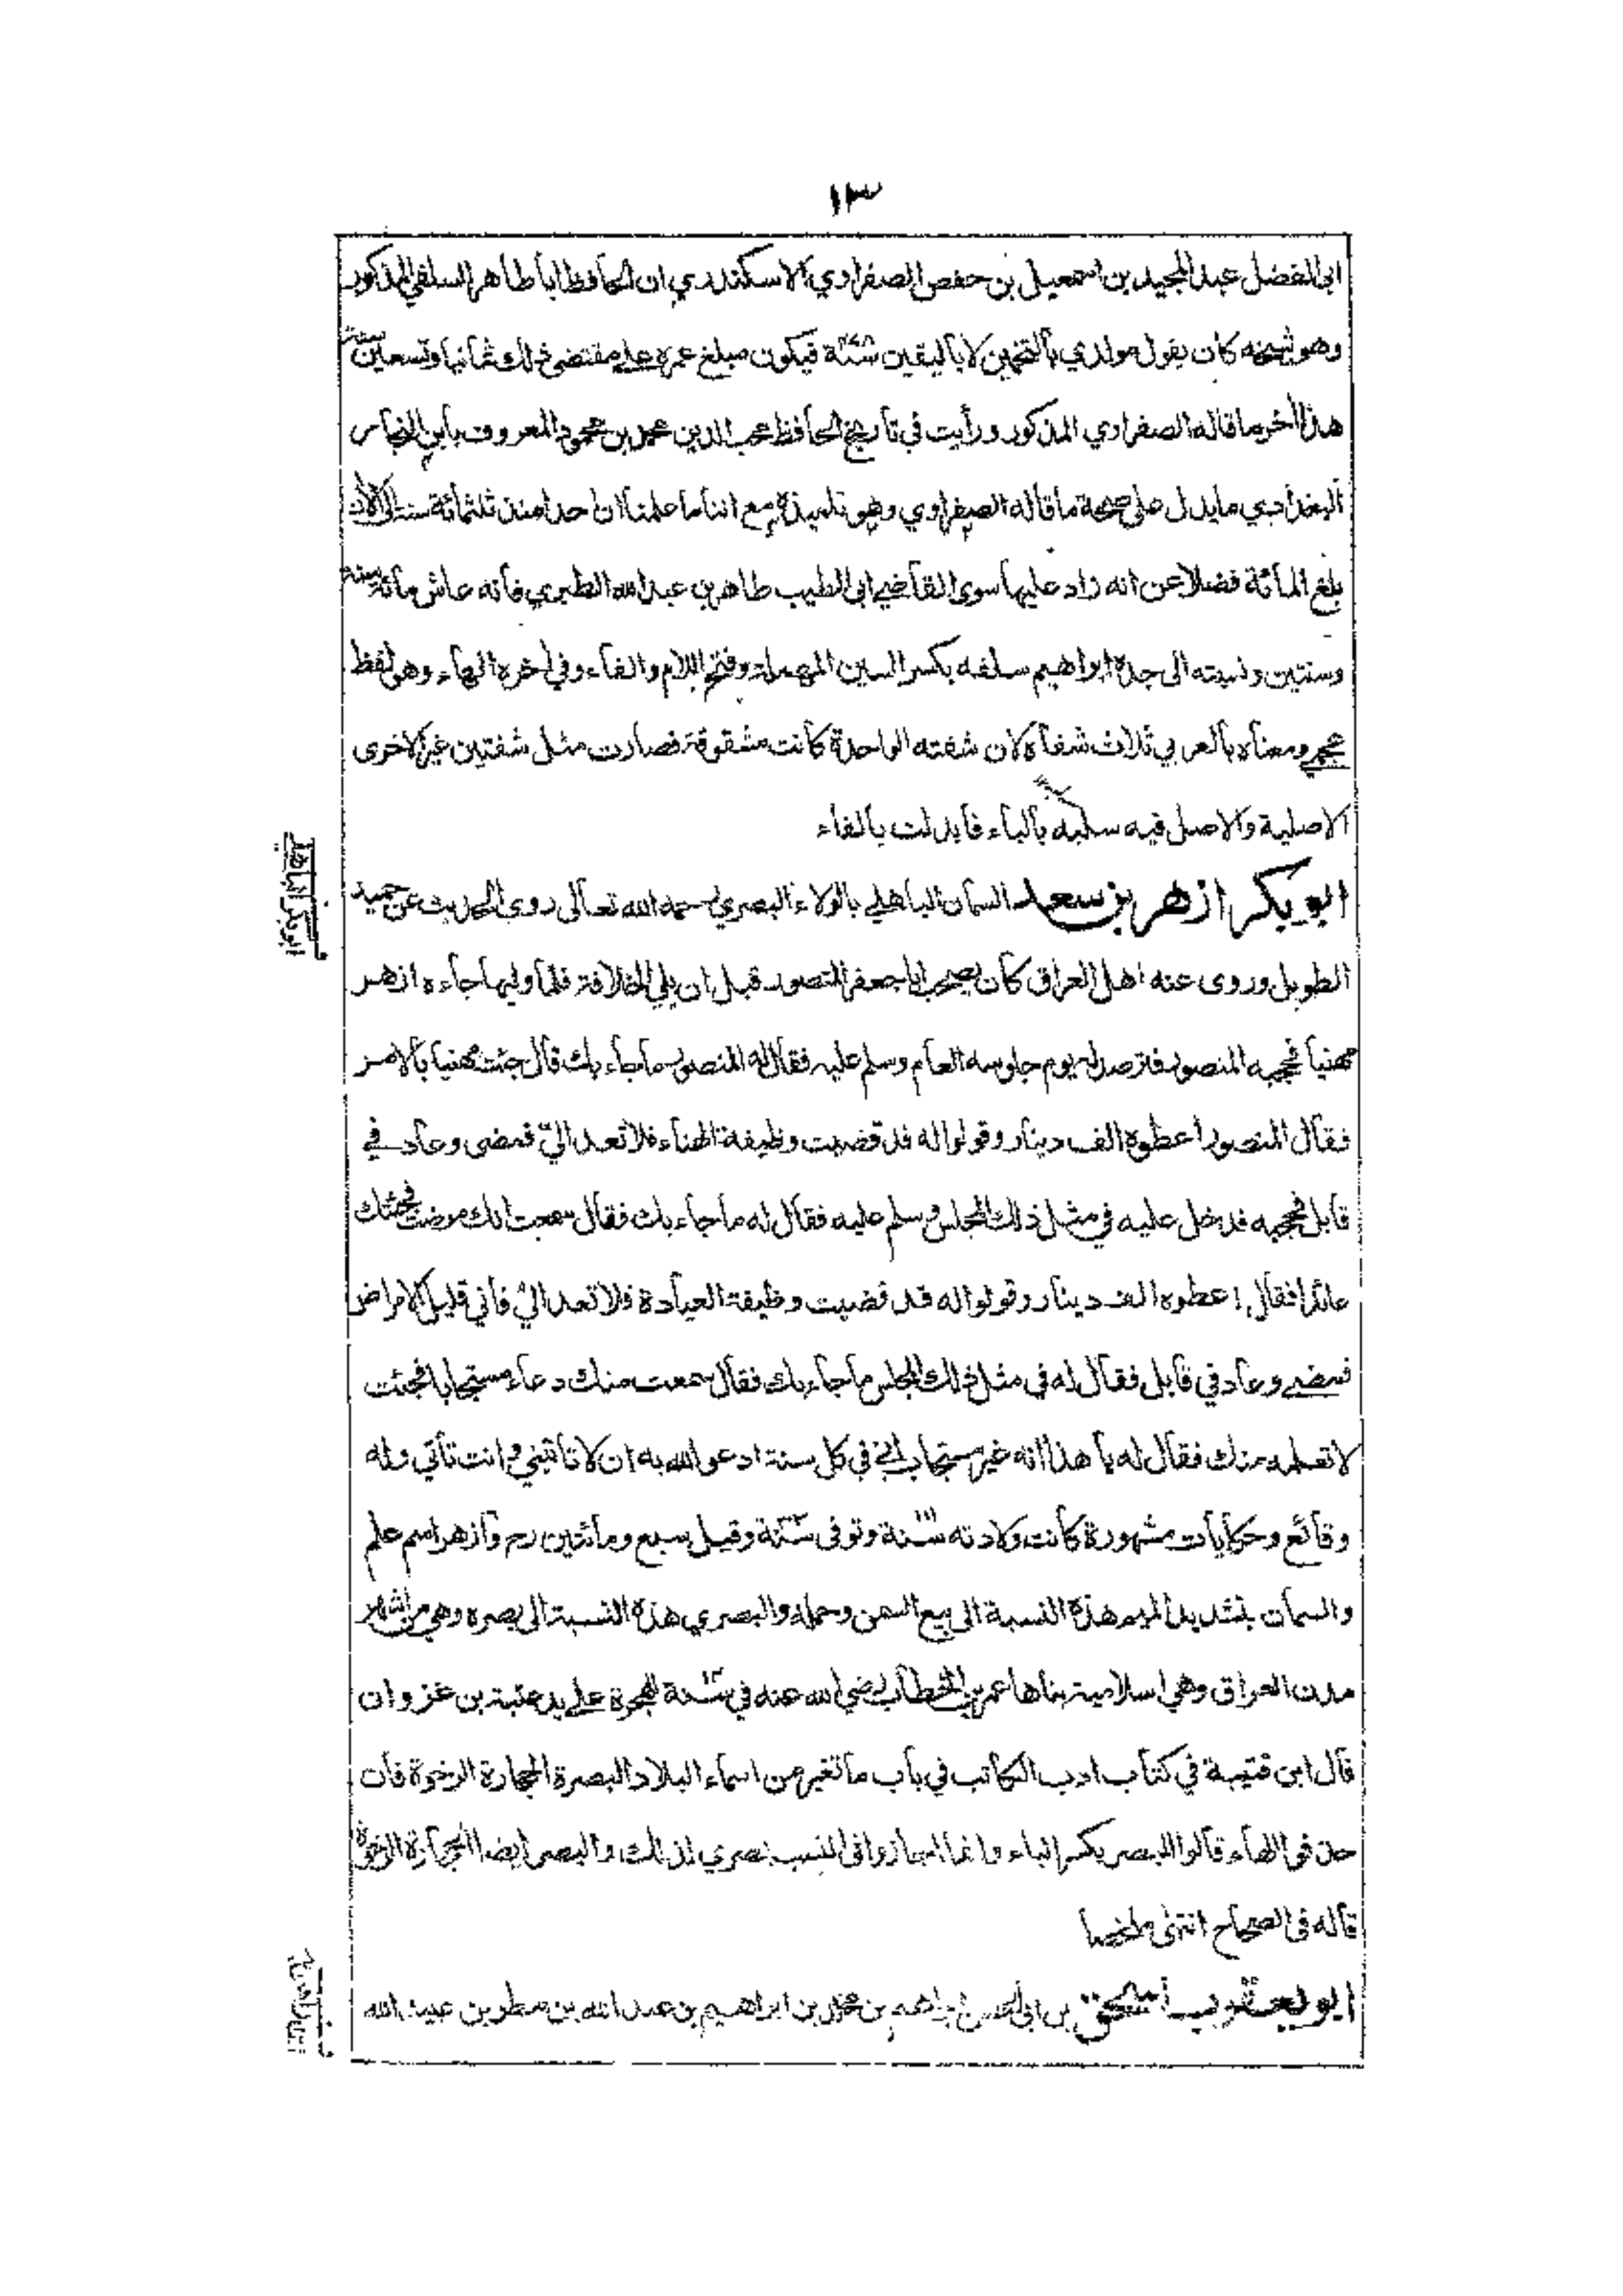 ١٣
ابى الفضل عبد المجيد بن اسمعيل بن حفص الصفراوي الاسكندري ان الحافظ ابا طاهر السلفي المذكور
وهو شيخه كان يقول مولدي بالتخمين لا باليقين سنة فيكون مبلغ عمره على مقتضى ذلك ثمانيا وتسعين سنة
هذا اخر ما قاله الصفراوي المذكور ورأيت في تاريخ الحافظ محب الدين محمد بن محمود المعروف بابن النجار
البغدادي ما يدل على صحة ما قاله الصفراوي وهو تلميذه مع اننا ما علمنا ان احدا منذ ثلثمائة سنة الى الآن
بلغ المائة فضلا عن انه زاد عليها سوى القاضي ابى الطيب طاهر بن عبد الله الطبري فانه عاش مائة سنة
وسنتين ونسبته الى جده ابراهيم سلفه بكسر السين المهملة وفتح اللام والفاء وفي اخره الهاء وهو لفظ
عجمي ومعناه بالعربي ثلاث شفاه لان شفته الواحدة كانت مشقوقة فصارت مثل شفتين غير الاخرى
الاصلية والاصل فيه سلبه بالباء فابدلت بالفاء
ابو بكر ازهر بن سعد السمان الباهلي بالولاء البصري رحمه الله تعالى روى الحديث عن حميد
الطويل وروى عنه اهل العراق كان يصحب ابا جعفر المنصور قبل ان يلي الخلافة فلما وليها جاءه ازهر
مهنيا فحجبه المنصور فترصد له يوم جلوسه العام وسلم عليه فقال له المنصور ما جاء بك قال جئت مهنيا بالامر
فقال المنصور اعطوه الف دينار وقولوا له قد قضيت وظيفة الهناء فلا تعد اليّ فمضى وعاد في
قابل فحجبه فدخل عليه في مثل ذلك المجلس وسلم عليه فقال له ما جاء بك فقال سمعت انك مرضت فجئتك
عائدا فقال اعطوه الف دينار وقولوا له قد قضيت وظيفة العيادة فلا تعد اليّ فاني قليل الامراض
فمضى وعاد في قابل فقال له في مثل ذلك المجلس ما جاء بك فقال سمعت منك دعاء مستجابا فجئت
لاتعلمه منك فقال له يا هذا انه غير مستجاب اني في كل سنة ادعو الله به ان لا تأتيني وانت تأتي وله
وقائع وحكايات مشهورة كانت ولادته سنة وتوفى سنة وقيل سبع ومائتين رح وازهر اسم علم
والسمان بتشديد الميم هذه النسبة الى بيع السمن وحمله والبصري هذه النسبة الى بصره وهي من اشهر
مدن العراق وهي اسلامية بناها عمر بن الخطاب رضي الله عنه في سنة للهجرة على يد عتبة بن غزوان
قال ابن قتيبة في كتاب ادب الكاتب في باب ما تغير من اسماء البلاد البصرة الحجارة الرخوة فان
حذفوا الهاء قالوا البصر بكسر الباء وانما اجازوا في النسب بصري لذلك والبصر ايضا الحجارة الرخوة
قاله في الصحاح انتهى ملخصا
ابو يعقوب اسحق بن ابى الحسن ابراهيم بن مخلد بن ابراهيم بن عبد الله بن مطر بن عبيد الله
ابو بكر الباهلي